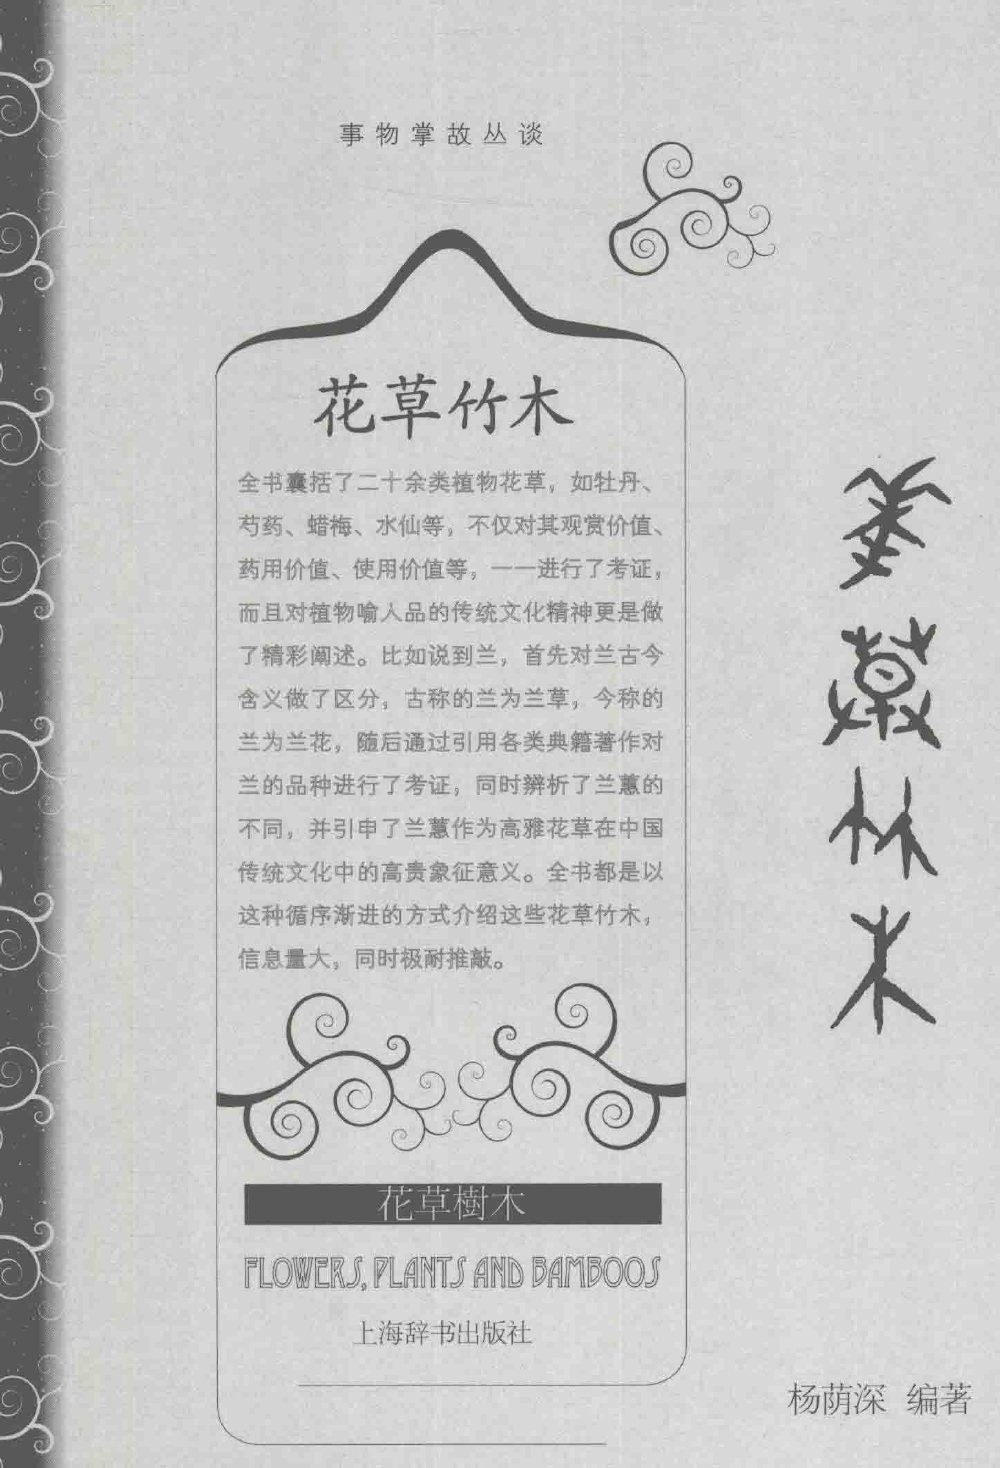 事物掌故丛谈
花草竹木
全书囊括了二十余类植物花草，如牡丹、
芍药、蜡梅、水仙等，不仅对其观赏价值、
药用价值、使用价值等，一一进行了考证，
而且对植物喻人品的传统文化精神更是做
了精彩阐述。比如说到兰，首先对兰古今
含义做了区分，古称的兰为兰草，今称的
兰为兰花，随后通过引用各类典籍著作对
兰的品种进行了考证，同时辨析了兰蕙的
不同，并引申了兰蕙作为高雅花草在中国
传统文化中的高贵象征意义。全书都是以
这种循序渐进的方式介绍这些花草竹木，
信息量大，同时极耐推敲。
花草樹木
FLOWERS, PLANTS AND BAMBOOS
上海辞书出版社
杨荫深 编著